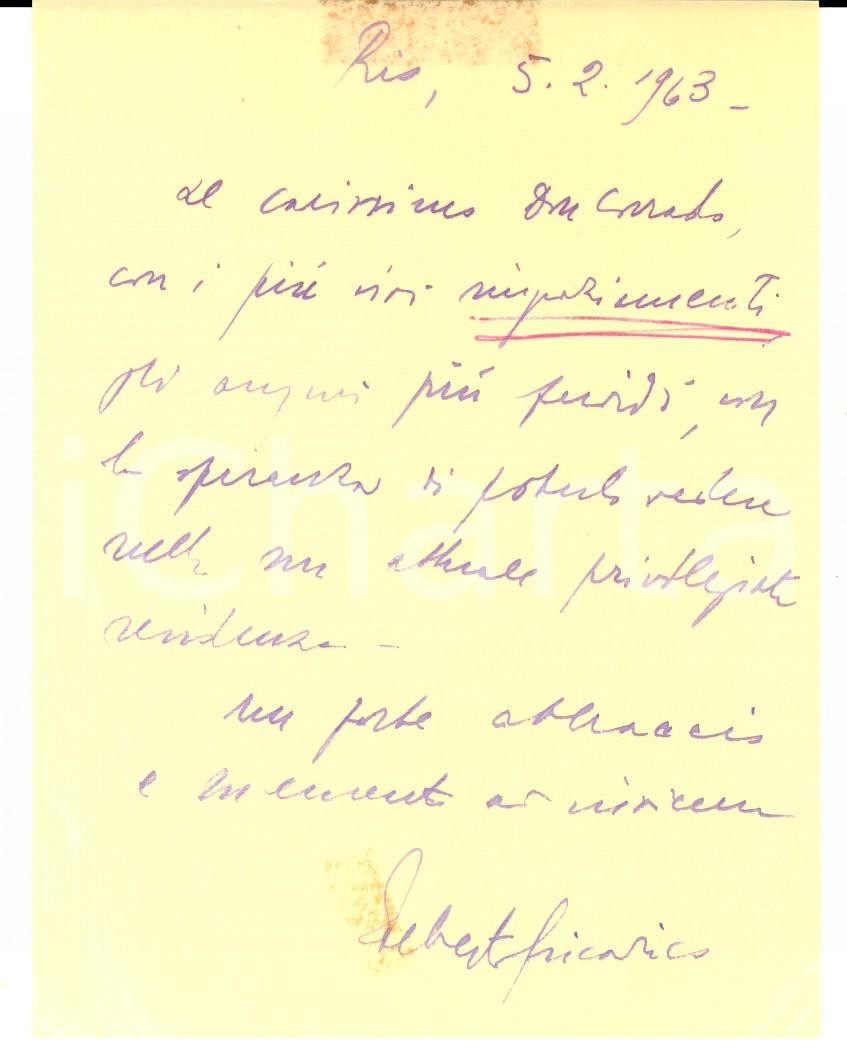 Rio, 5.2.1963 –
Al carissimo Don Corrado,
con i più vivi ringraziamenti
gli auguri più fervidi, con
la speranza di poterlo vedere
nella sua attuale privilegiata
residenza –
Un forte abbraccio
e memento ad invicem
iCharta